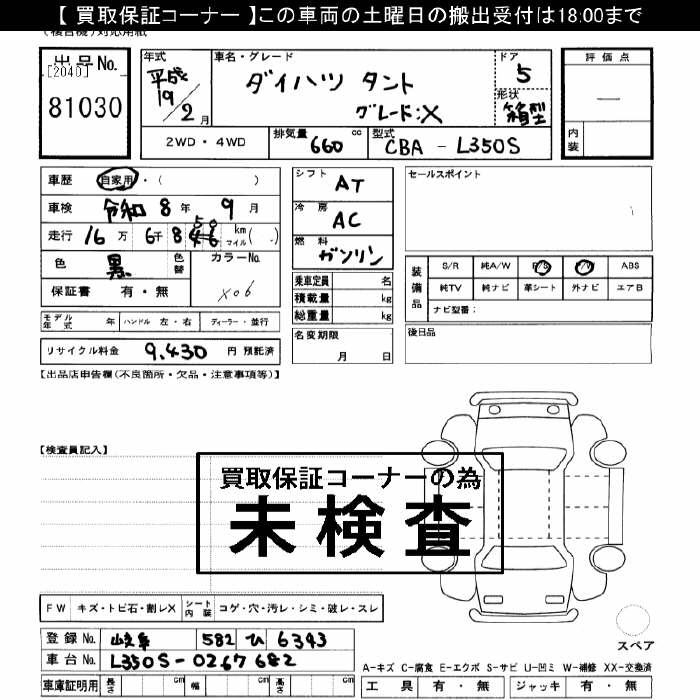 【 買取保証コーナー 】この車両の土曜日の搬出受付は18:00まで
出品No.
[2040]
81030
年式
平成
19/2月
車名・グレード
ダイハツ タント
グレード:X
ドア
5
形状
箱型
評価点
—
内装
2WD・4WD
排気量 660 cc
型式 CBA - L350S
車歴 自家用・( )
車検 令和 8年 9月
走行 16万 6千 8 50 km マイル( . )
色 黒 色替
カラーNo. X06
保証書 有・無
モデル年式 年 ハンドル 左・右 ディーラー・並行
リサイクル料金 9,430 円 預託済
シフト AT
冷房 AC
燃料 ガソリン
乗車定員 名
積載量 kg
総重量 kg
名変期限
月 日
セールスポイント
装備品
S/R 純A/W P/S P/W ABS
純TV 純ナビ 革シート 外ナビ エアB
ナビ型番:
後日品
【出品店申告欄(不良箇所・欠品・注意事項等)】
【検査員記入】
買取保証コーナーの為
未検査
FW キズ・トビ石・割レX シート内装 コゲ・穴・汚レ・シミ・破レ・スレ
登録No. 岐阜 582 ひ 6343
車台No. L350S-0267682
車庫証明用 長さ cm 幅 cm 高さ cm
スペア
A-キズ C-腐食 E-エクボ S-サビ U-凹ミ W-補修 XX-交換済
工具 有・無 ジャッキ 有・無